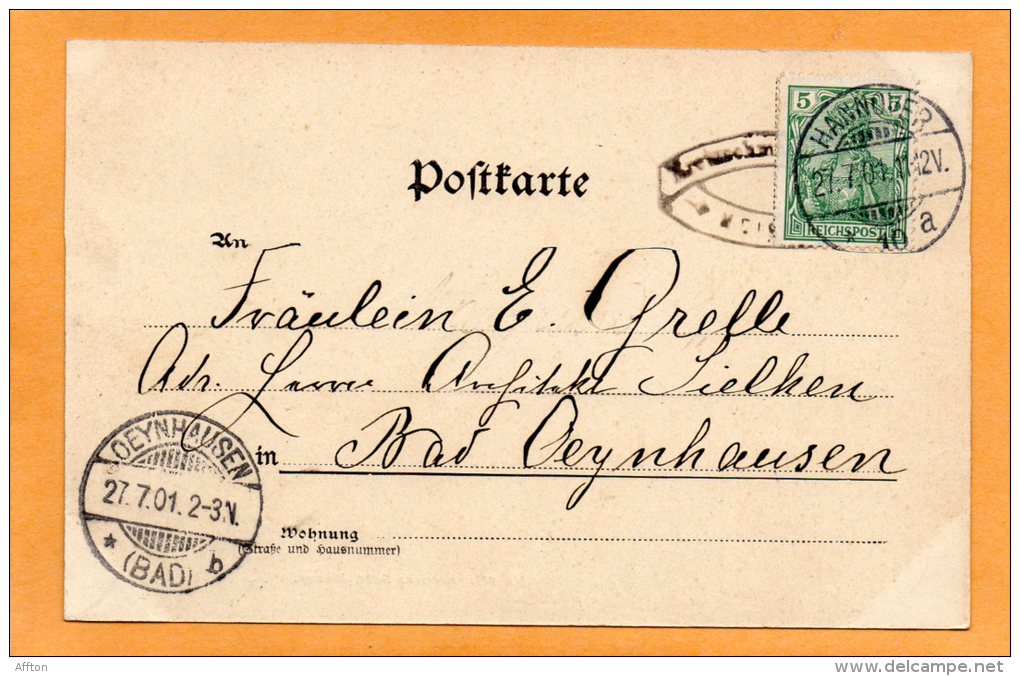 Postkarte
5 5
REICHSPOST
HANNOVER
27.7.01.11-12V.
* 10 a
An
Fräulein E. Grelle
Adr. Herrn Architekt Sielken
in Bad Oeynhausen
OEYNHAUSEN
27.7.01. 2-3.N.
* (BAD) b
Wohnung
(Straße und Hausnummer)
Affton
www.delcampe.net